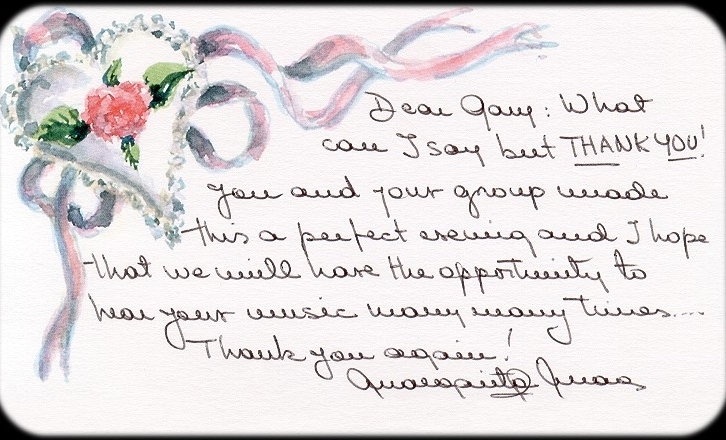 Dear Gary: What
can I say but THANK YOU!
you and your group made
this a perfect evening and I hope
that we will have the opportunity to
hear your music many many times....
Thank you again!
Margarita